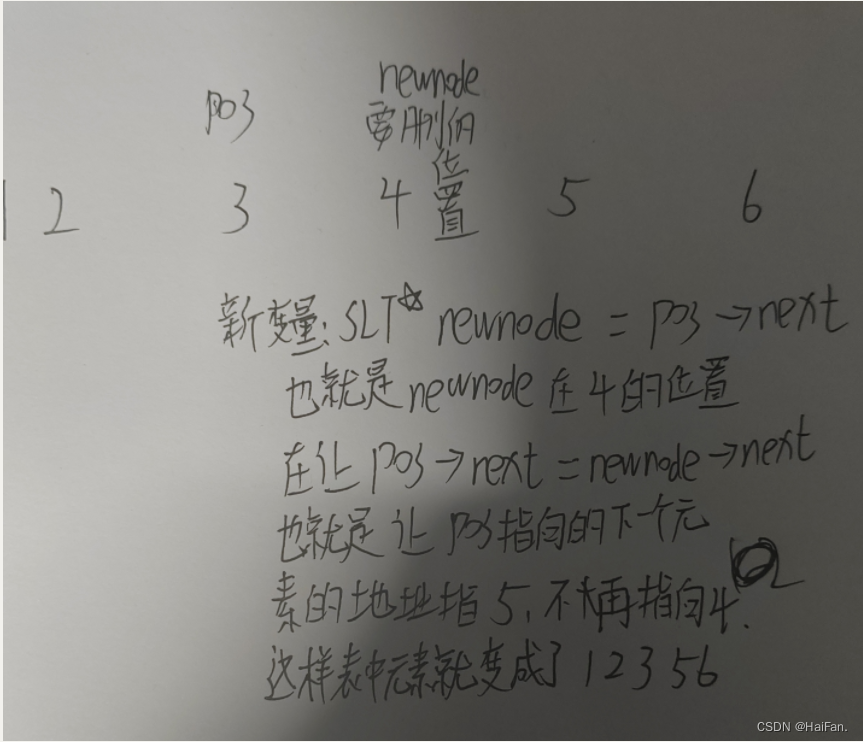 newnode
pos 要删的
位
1 2 3 4 置 5 6
新变量:SLT* newnode = pos →next
也就是newnode在4的位置
在让 pos→next = newnode→next
也就是让pos指向的下一个元
素的地址指5,不再指向4.
这样表中元素就变成了 1 2 3 5 6
CSDN @HaiFan.